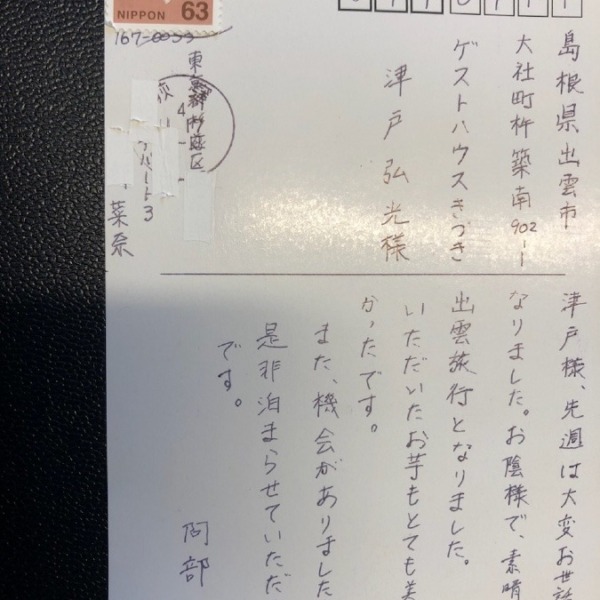 NIPPON 63
島根県出雲市
大社町杵築南902-1
ゲストハウスきづき
津戸弘光様
167-0053
東京都杉並区
アパート3
菜奈
津戸様、先週は大変お世話
なりました。お陰様で、素晴
出雲旅行となりました。
いただいたお芋もとても美
かったです。
また、機会がありました
是非泊まらせていただ
です。
阿部